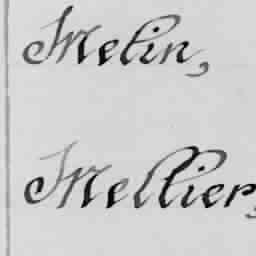 Melin,
Mellier,